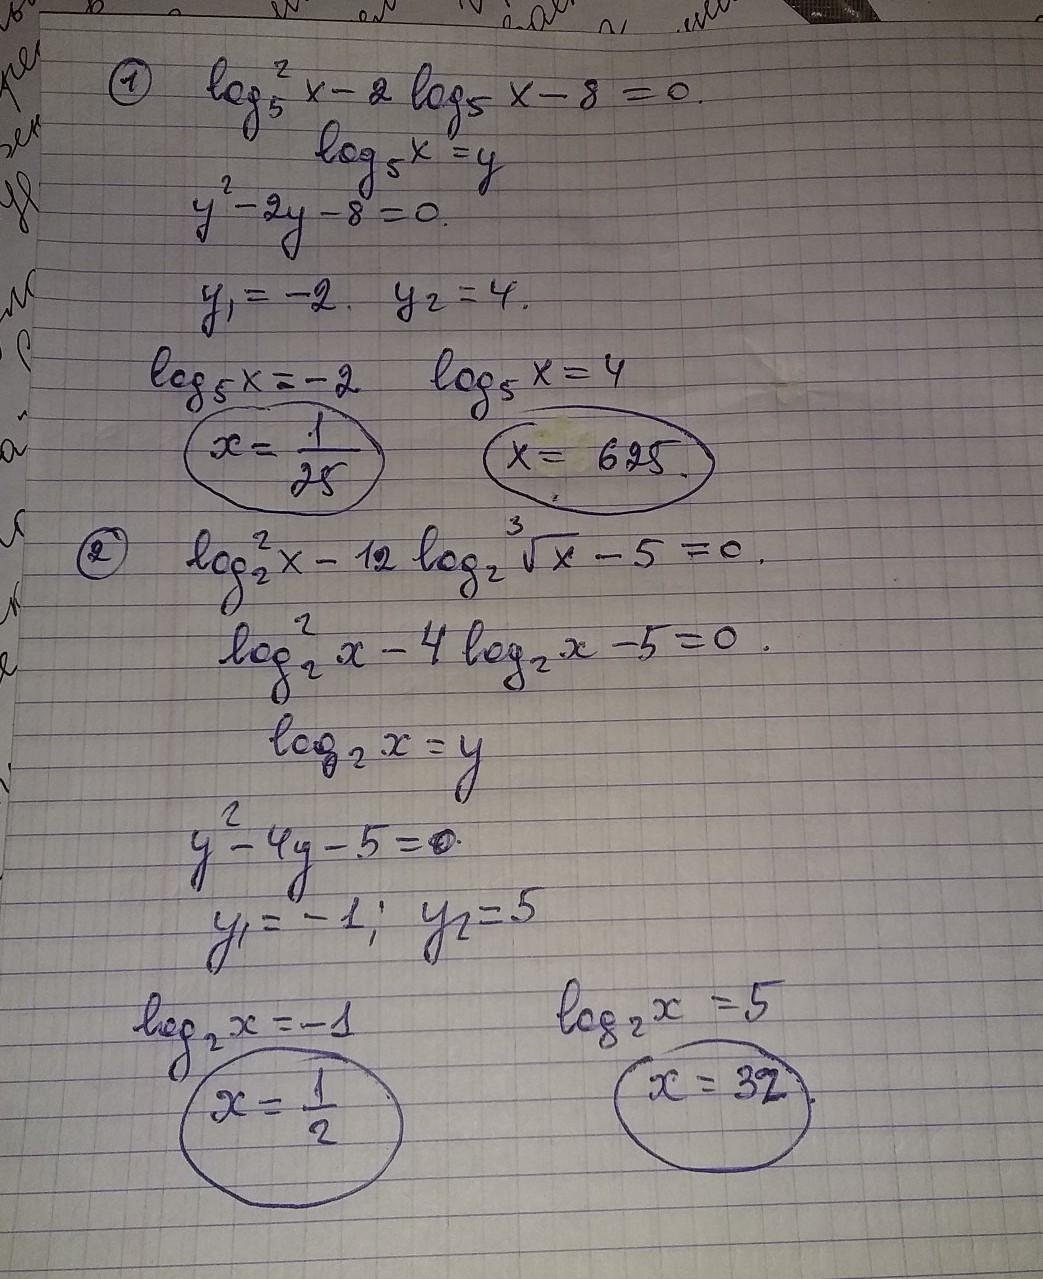 ① log₅²x − 2 log₅ x − 8 = 0.
log₅x = y
y² − 2y − 8 = 0.
y₁ = −2. y₂ = 4.
log₅x = −2 log₅x = 4
x = 1/25 x = 625.
② log₂²x − 12 log₂ ³√x − 5 = 0.
log₂²x − 4 log₂x − 5 = 0.
log₂x = y
y² − 4y − 5 = 0.
y₁ = −1; y₂ = 5
log₂x = −1 log₂x = 5
x = 1/2 x = 32.